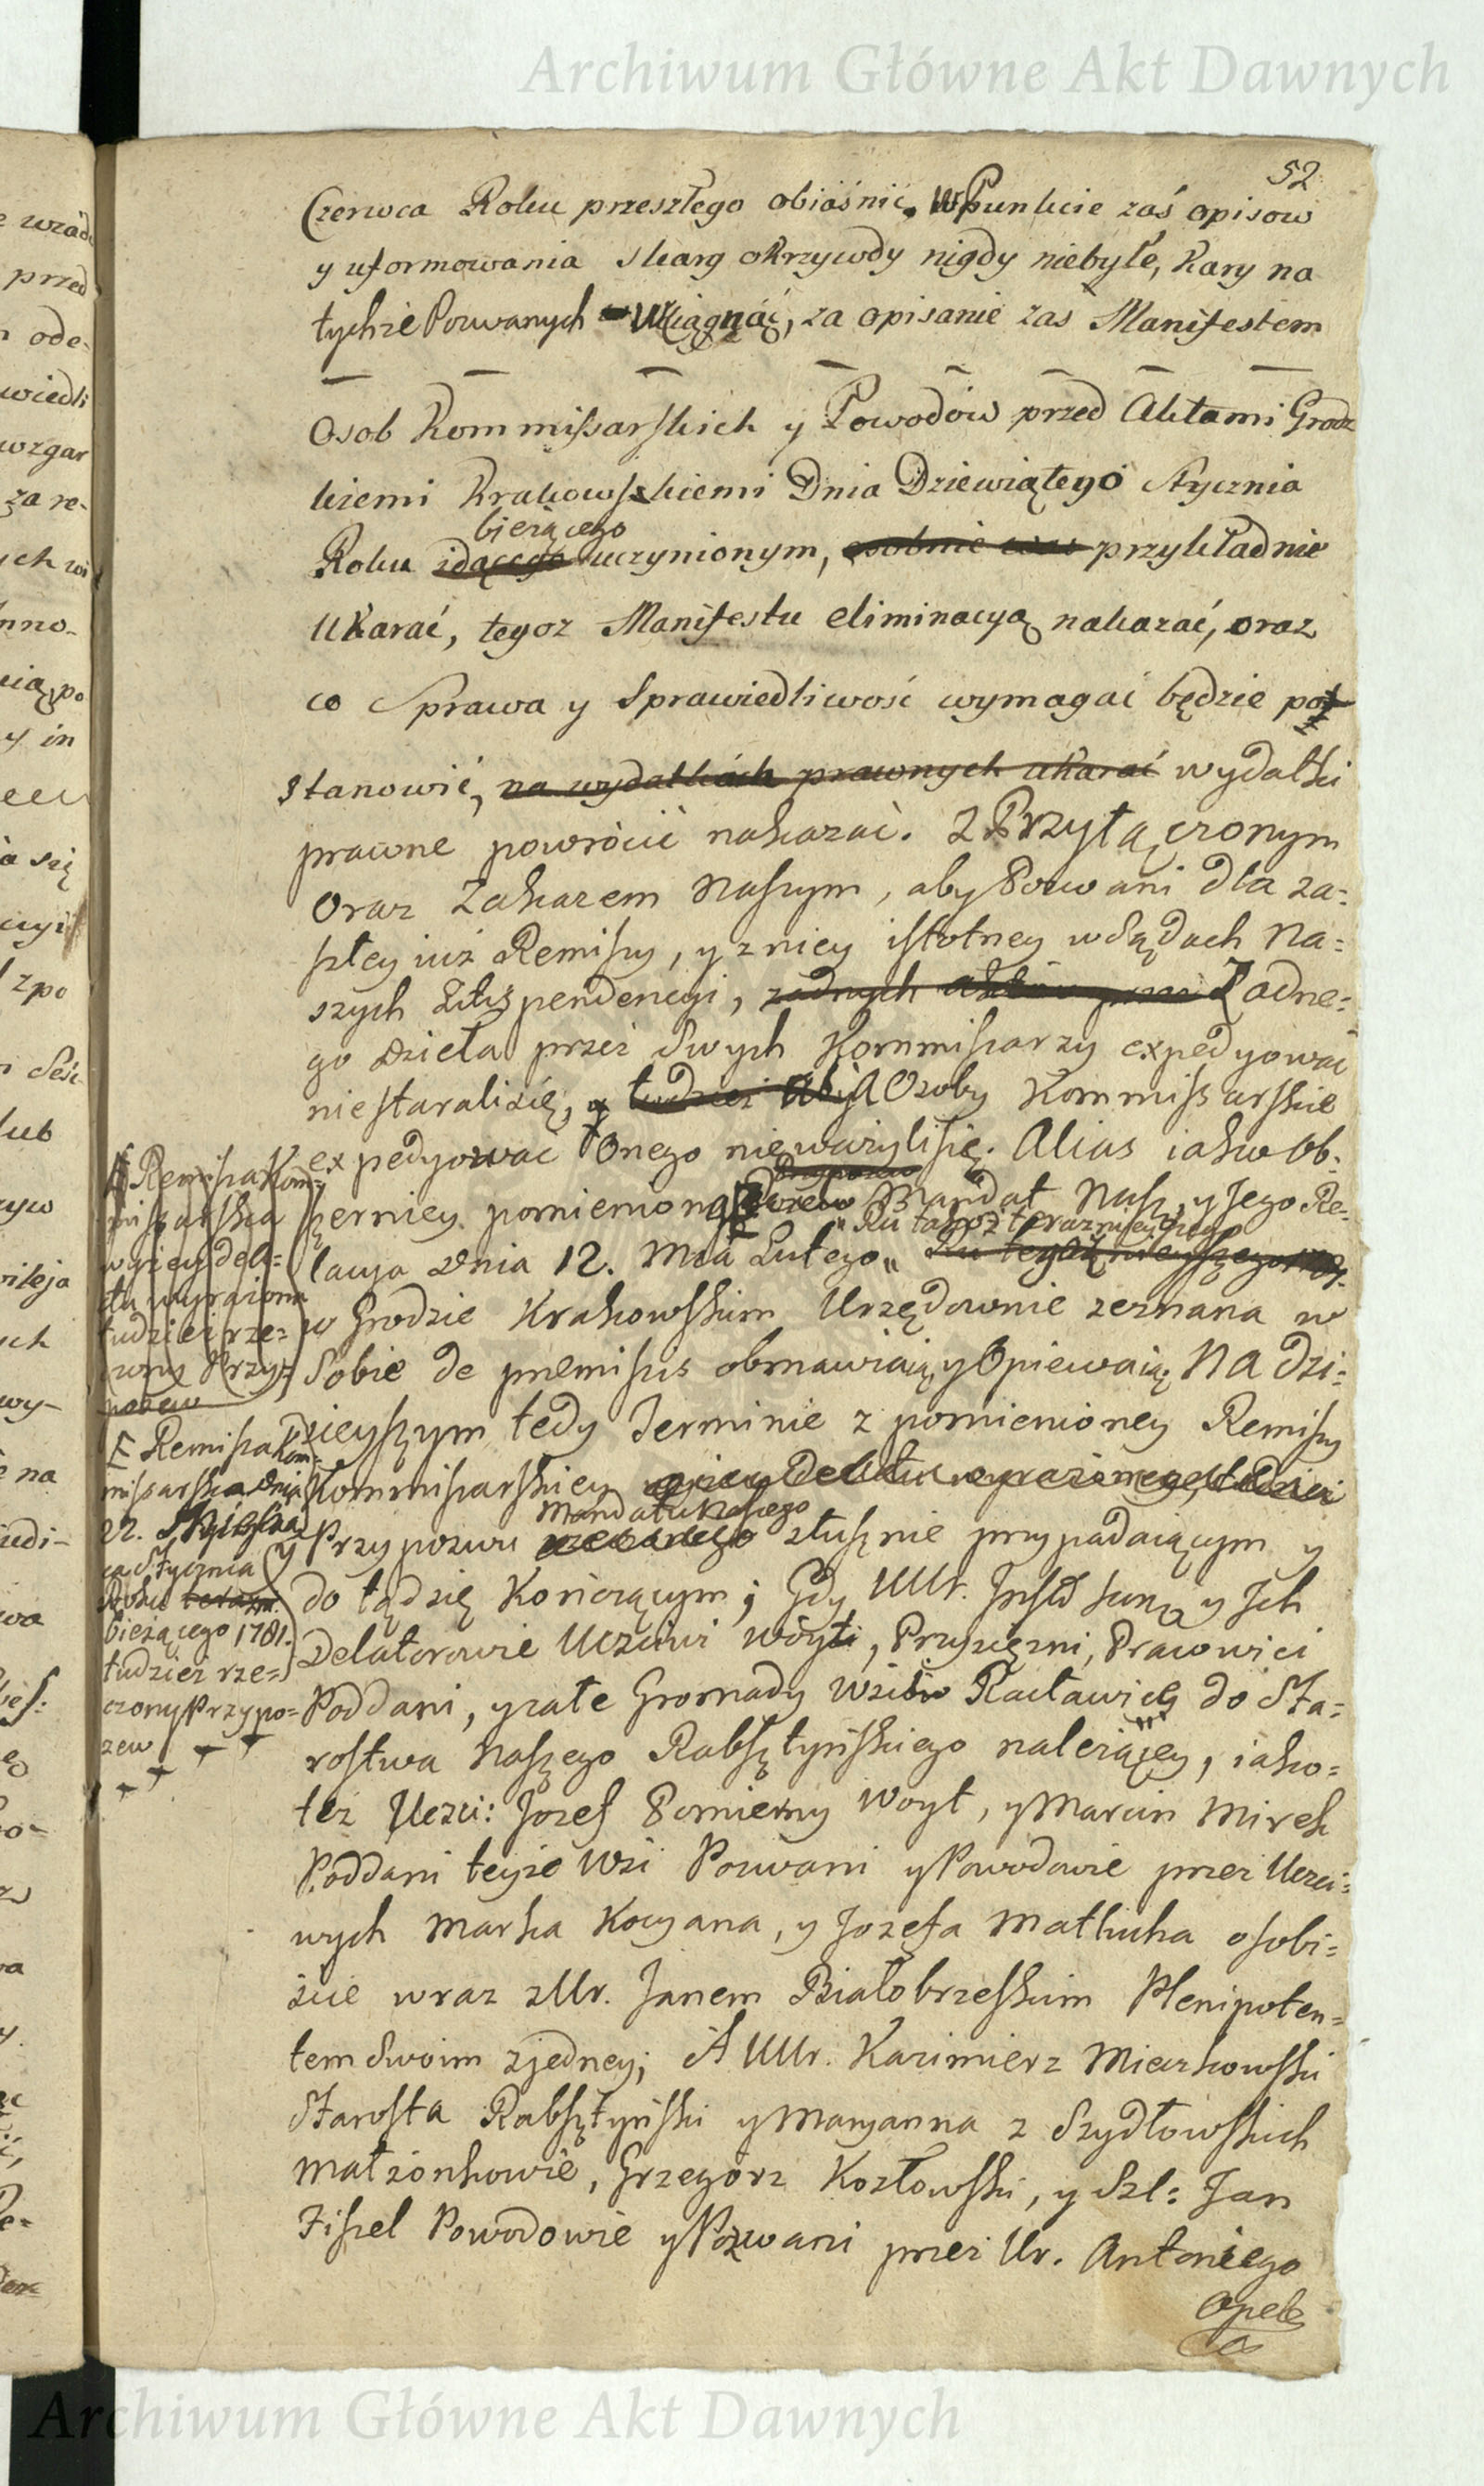 Archiwum Główne Akt Dawnych
52
Czerwca Roku przeszłego obiaśnić, W Punkcie zaś opisow
y uformowania skarg okrzywdy nigdy niebyłe, Kary na
tychże Pozwanych Wciągnąć, za opisanie zas Manifestem
Osob Kommissarskich y Powodów przed Aktami Grodz
kiemi Krakowskiemi Dnia Dziewiątego Stycznia
bieżącego
Roku idącego uczynionym, osobnie przykładnie
Ukarać, tegoz Manifestu eliminacyą nakazać, oraz
co Sprawa y Sprawiedliwość wymagać będzie po
stanowić, na wydatkach prawnych ukarać wydatki
prawne powrócić nakazać. Z Przyłączonym
Oraz Zakazem Naszym, aby Pozwani dla za=
szłey iuż Remissy, y z niey istotney w Sądach Na=
szych Litispendencyi, żadnych Żadne=
go Dzieła przez Swych Kommissarzy expedyować
niestaralisię, y tudzież Aby A Osoby Kommissarskie
expedyować Onego nieważylisię. Alias iako Ob=
szerniey pomieniony Mandat Nasz, y Jego Re=
Ru także teraznieyszego
lacya Dnia 12. Mca Lutego„
w Grodzie Krakowskim Urzędownie zeznana w
Sobie de praemissis obmawiaią y Opiewaią. Na dzi=
sieyszym tedy Terminie z pomienioney Remissy
Kommissarskiey
Mandatu Naszego
Przypozwu słusznie przypadaiącym y
do tądsię Kończącym; Gdy UUr. Instigatores y Ich
Delatorowie Uczciwi Wóyt, Przysiężni, Pracowici
Poddani, y całe Gromady Wsiów Racławicy do Sta=
rostwa Naszego Rabsztyńskiego należącey, iako=
też Uczci: Jozef Pomierny Woyt, y Marcin Mirek
Poddani teyże Wsi Pozwani y Powodowie przez Uczci=
wych Marka Kocyana, y Jozefa Matkucha osobi=
ście wraz z Ur. Janem Białobrzeskim Plenipoten=
tem Swoim zjedney; A UUr. Kazimierz Mieszkowski
Starosta Rabsztyński y Maryanna z Szydłowskich
Małżonkowie, Grzegorz Kozłowski, y Szl: Jan
Fiszel Powodowie y Pozwani przez Ur. Antoniego
Opel
Remissa Kom=
missarska
w wyrażona
tudzież rze=
czony Przy=
pozew
F Remissa Kom=
missarska Dnia
22.
ca Stycznia
Roku
bieżącego 1781.
tudzież rze=
czony Przypo=
zew
Archiwum Główne Akt Dawnych